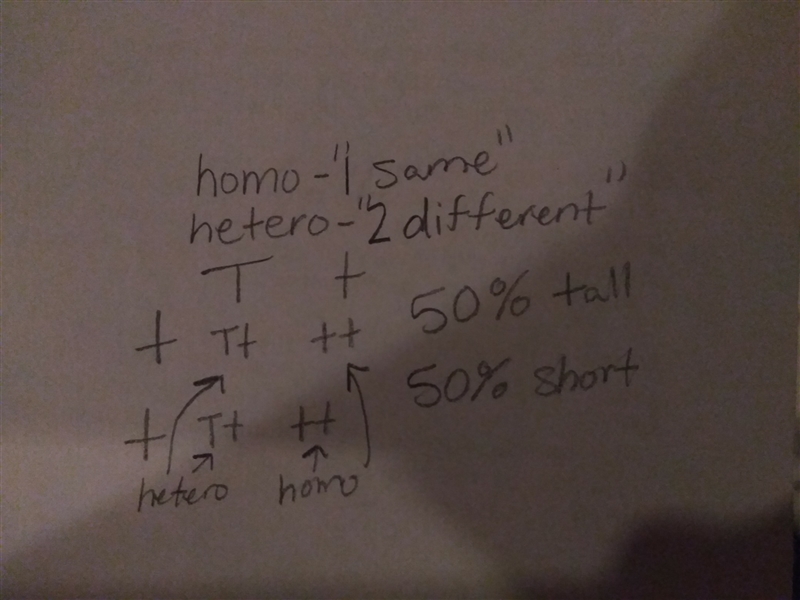 homo - "1 same"
hetero - "2 different"
T t
t Tt tt 50% tall
50% short
t Tt tt
hetero homo